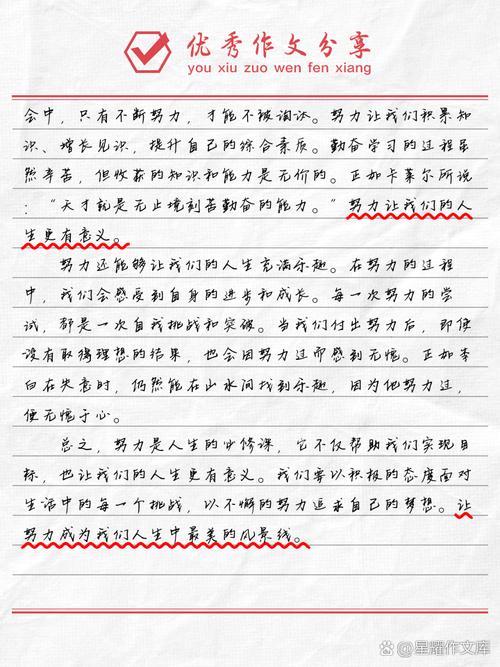 优秀作文分享
you xiu zuo wen fen xiang
会中，只有不断努力，才能不被淘汰。努力让我们积累知
识、增长见识，提升自己的综合素质。勤奋学习的过程虽
然辛苦，但收获的知识和能力是无价的。正如卡莱尔所说
：“天才就是无止境刻苦勤奋的能力。”努力让我们的人
生更有意义。
努力还能够让我们的人生充满乐趣。在努力的过程
中，我们会感受到自身的进步和成长。每一次努力的尝
试，都是一次自我挑战和突破。当我们付出努力后，即使
没有取得理想的结果，也会因努力过而感到无憾。正如李
白在失意时，仍然能在山水间找到乐趣，因为他努力过，
便无憾于心。
总之，努力是人生的必修课，它不仅帮助我们实现目
标，也让我们的人生更有意义。我们要以积极的态度面对
生活中的每一个挑战，以不懈的努力追求自己的梦想。让
努力成为我们人生中最美的风景线。
星耀作文库